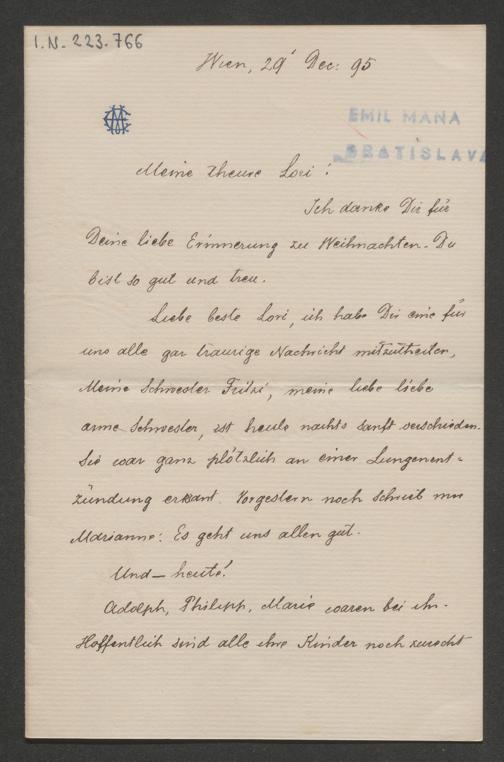 I.N.-223.766
Wien, 29' Dec: 95
EMIL MANA
BRATISLAVA
Meine theure Lori!
Ich danke Dir für
Deine liebe Erinnerung zu Weihnachten. Du
bist so gut und treu.
Liebe beste Lori, ich habe Dir eine für
uns alle gar traurige Nachricht mitzutheilen,
Meine Schwester Fritzi, meine liebe liebe
arme Schwester, ist heute nachts sanft verschieden.
Sie war ganz plötzlich an einer Lungenent=
zündung erkrant. Vorgestern noch schrieb mir
Marianne: Es geht uns allen gut.
Und – heute!
Adolph, Philipp, Marie waren bei ihr.
Hoffentlich sind alle ihre Kinder noch zurecht